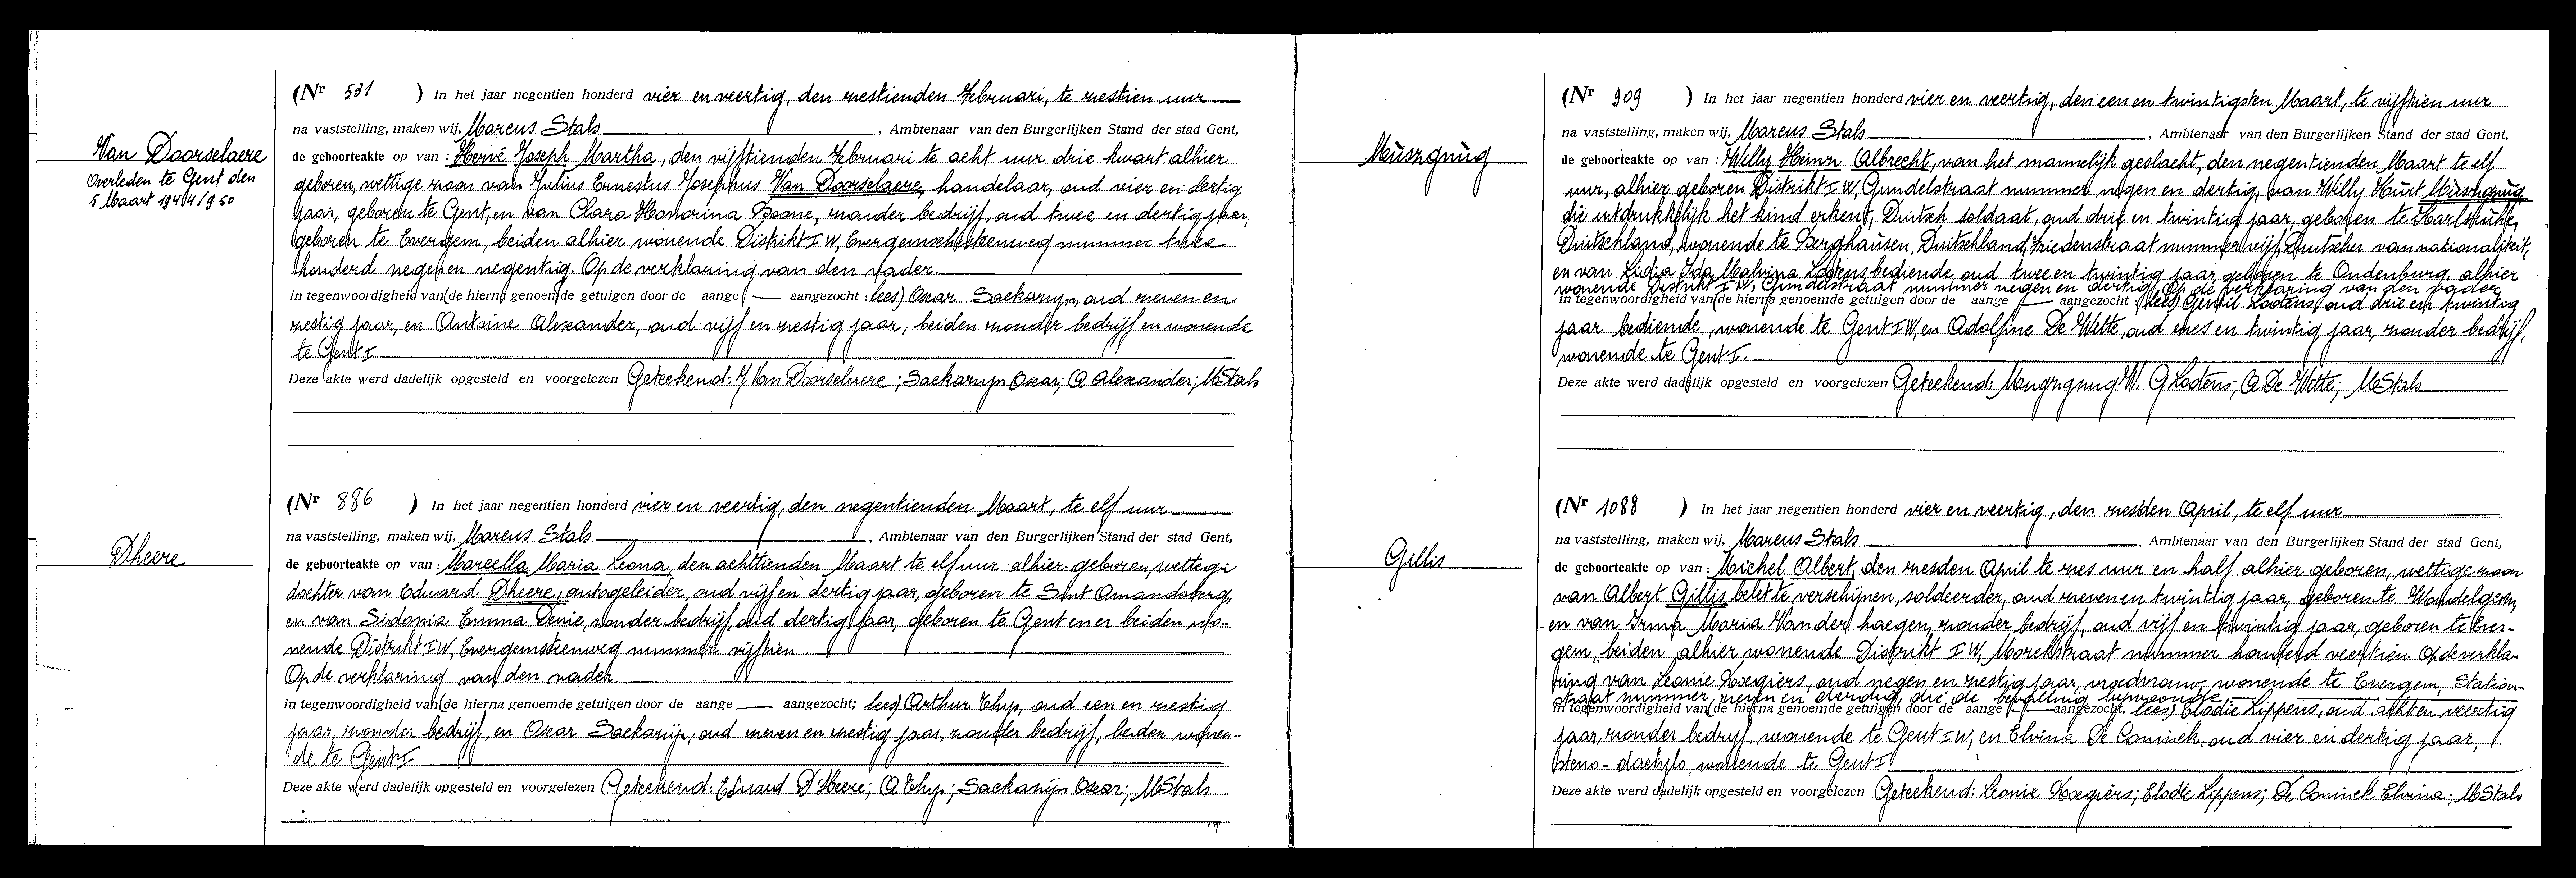 Van Doorselaere
Overleden te Gent den
5 Maart 1944/950
(Nr 531 ) In het jaar negentien honderd vier en veertig, den zestienden Februari, te zestien uur
na vaststelling, maken wij, Marcus Stals, Ambtenaar van den Burgerlijken Stand der stad Gent,
de geboorteakte op van : Hervé Joseph Martha, den vijftienden Februari te acht uur drie kwart alhier
geboren, wettige zoon van Julius Ernestus Josephus Van Doorselaere, handelaar, oud vier en dertig
jaar, geboren te Gent, en van Clara Honorina Boone, zonder bedrijf, oud twee en dertig jaar,
geboren te Evergem, beiden alhier wonende Distrikt I W, Evergemschesteenweg nummer twee
honderd negen en negentig. Op de verklaring van den vader.
in tegenwoordigheid van (de hierna genoemde getuigen door de aange — aangezocht : lees) Oscar Sackarijn, oud zeven en
zestig jaar, en Antoine Alexander, oud vijf en zestig jaar, beiden zonder bedrijf en wonende
te Gent I
Deze akte werd dadelijk opgesteld en voorgelezen Geteekend: J Van Doorselaere ; Sackarijn Oscar; A Alexander; MStals
Dheere
(Nr 886 ) In het jaar negentien honderd vier en veertig, den negentienden Maart, te elf uur
na vaststelling, maken wij, Marcus Stals, Ambtenaar van den Burgerlijken Stand der stad Gent,
de geboorteakte op van : Marcella Maria Leona, den achttienden Maart te elf uur alhier geboren, wettige
dochter van Eduard Dheere, autogeleider, oud vijf en dertig jaar, geboren te Sint Amandsberg,
en van Sidonia Emma Denie, zonder bedrijf, oud dertig jaar, geboren te Gent en er beiden wo-
nende Distrikt I W, Evergemsteenweg nummer vijftien.
Op de verklaring van den vader.
in tegenwoordigheid van (de hierna genoemde getuigen door de aange — aangezocht; lees) Arthur Thyp, oud een en zestig
jaar, zonder bedrijf, en Oscar Sackarijn, oud zeven en zestig jaar, zonder bedrijf, beiden wonen-
de te Gent I
Deze akte werd dadelijk opgesteld en voorgelezen Geteekend: Eduard D'Heere; A Thyp; Sackarijn Oscar; MStals
Muszgnug
(Nr 909 ) In het jaar negentien honderd vier en veertig, den een en twintigsten Maart, te vijftien uur
na vaststelling, maken wij, Marcus Stals, Ambtenaar van den Burgerlijken Stand der stad Gent,
de geboorteakte op van : Willy Heinz Albrecht, van het mannelijk geslacht, den negentienden Maart te elf
uur, alhier geboren Distrikt I W, Gundelstraat nummer negen en dertig, van Willy Kurt Muszgnug
die uitdrukkelijk het kind erkent, Duitsch soldaat, oud drie en twintig jaar, geboren te Karlsruhe,
Duitschland, wonende te Berghausen, Duitschland, Friedenstraat nummer vijf, Duitscher van nationaliteit,
en van Lidia Ida Malvina Lootens, bediende, oud twee en twintig jaar, geboren te Oudenburg, alhier
wonende Distrikt I W, Gundelstraat nummer negen en dertig. Op de verklaring van den vader,
in tegenwoordigheid van (de hierna genoemde getuigen door de aange — aangezocht ; lees) Gentil Lootens, oud drie en twintig
jaar bediende, wonende te Gent I W, en Adolfine De Wette, oud zes en twintig jaar, zonder bedrijf,
wonende te Gent I.
Deze akte werd dadelijk opgesteld en voorgelezen Geteekend: W. G Lootens; A De Wette; MStals
Gillis
(Nr 1088 ) In het jaar negentien honderd vier en veertig, den zesden April, te elf uur
na vaststelling, maken wij, Marcus Stals, Ambtenaar van den Burgerlijken Stand der stad Gent,
de geboorteakte op van : Michel Albert, den zesden April te zes uur en half alhier geboren, wettige zoon
van Albert Gillis, belet te verschijnen, soldeerder, oud zeven en twintig jaar, geboren te Wondelgem,
en van Irma Maria Vander haegen, zonder bedrijf, oud vijf en twintig jaar, geboren te Ever-
gem, beiden alhier wonende Distrikt I W, Morekstraat nummer honderd veertien. Op de verkla-
ring van Leonie Haegiers, oud negen en zestig jaar, vroedvrouw, wonende te Evergem, Station-
straat nummer zeven en dertig, die de bevalling bijwoonde
in tegenwoordigheid van (de hierna genoemde getuigen door de aange — aangezocht, lees) Elodie Lippens, oud acht en veertig
jaar, zonder bedrijf, wonende te Gent I W, en Elvina De Coninck, oud vier en dertig jaar,
steno-dactylo, wonende te Gent I
Deze akte werd dadelijk opgesteld en voorgelezen Geteekend: Leonie Haegiers; Elodie Lippens; De Coninck Elvina; MStals